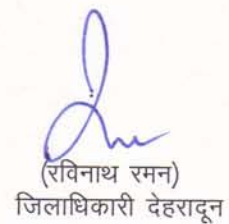 (रविनाथ रमन)
जिलाधिकारी देहरादून